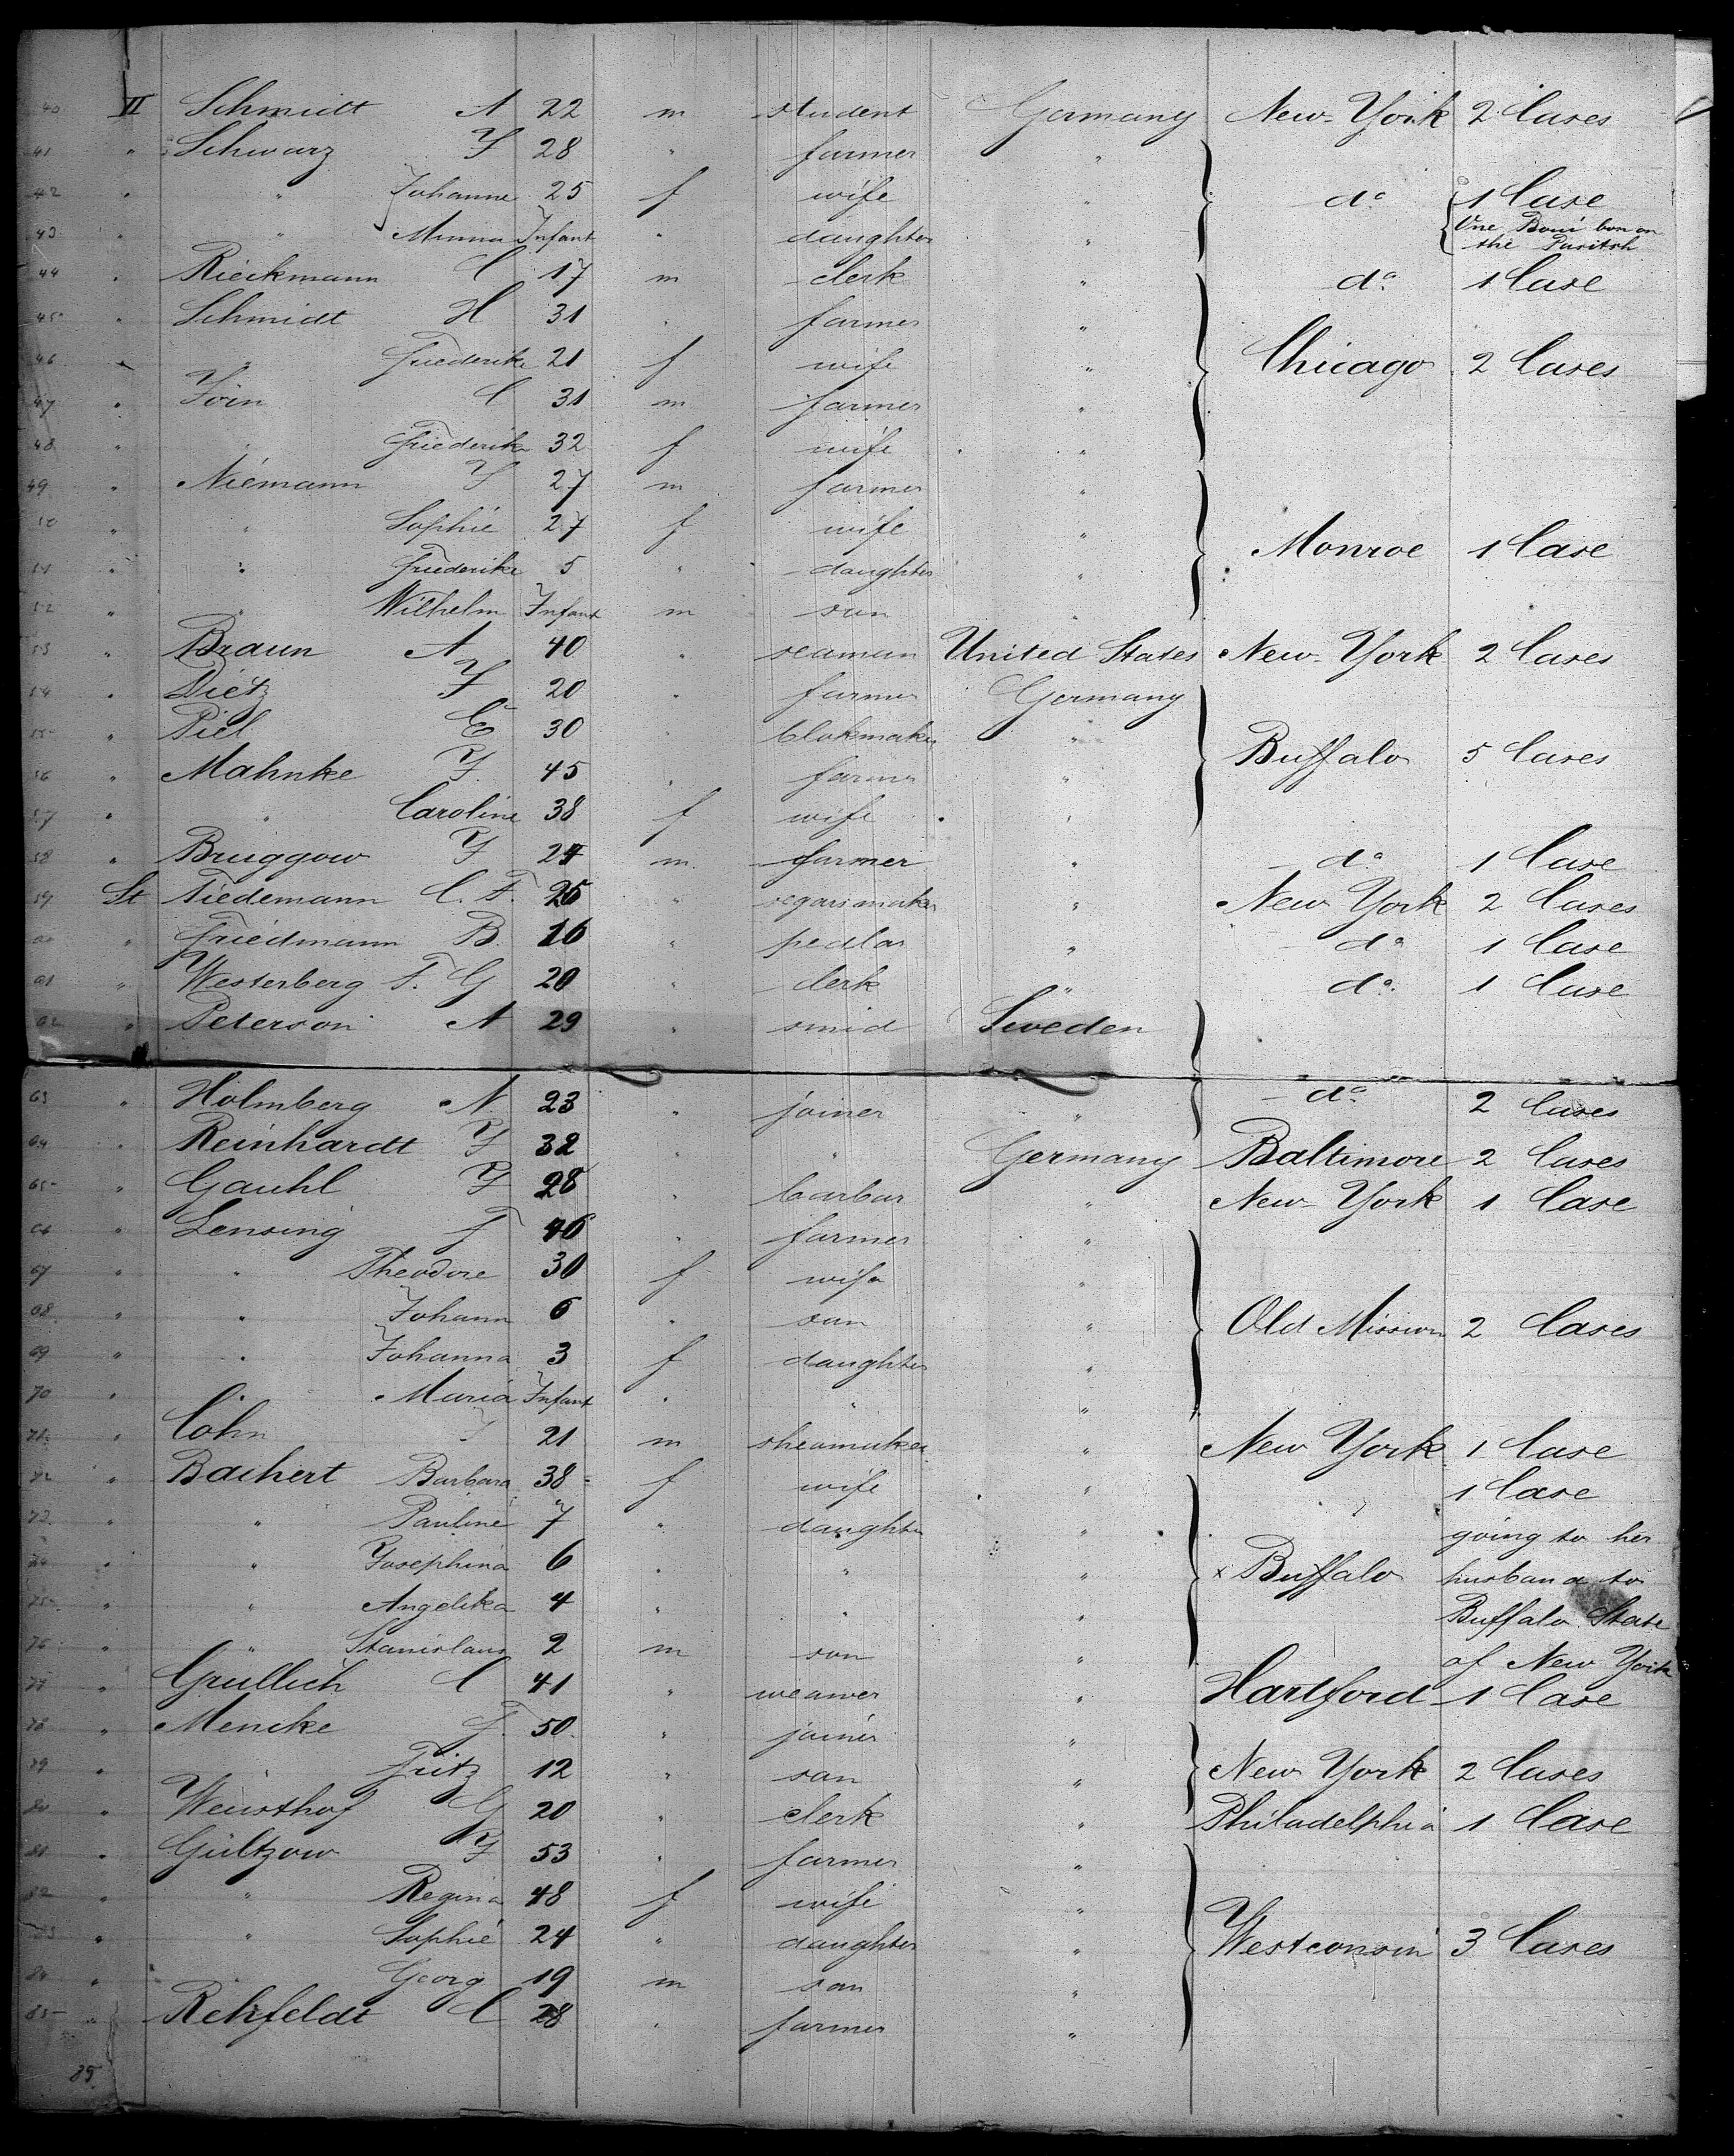 40 II Schmidt A 22 m student Germany New-York 2 Cases
41 " Schwarz J 28 " farmer "
42 " " Johanne 25 f wife " do 1 Case
43 " " Minna Infant " daughter " One born on the
44 " Rieckmann C 17 m clerk " do 1 Case
45 " Schmidt H 31 " farmer "
46 " " Friederike 21 f wife " Chicago 2 Cases
47 " Join C 31 m farmer "
48 " " Friederike 32 f wife "
49 " Niemann J 27 m farmer "
50 " " Sophie 27 f wife "
51 " " Friederike 5 " daughter " Monroe 1 Case
52 " " Wilhelm Infant m son "
53 " Braun A 40 " seaman United States New-York 2 Cases
54 " Dietz J 20 " farmer Germany
55 " Piel E 30 " blokmaker "
56 " Mahnke J. 45 " farmer " Buffalo 5 Cases
57 " " Caroline 38 f wife "
58 " Bruggow J 24 m farmer " do 1 Case
59 St Tiedemann C. F. 26 " segarsmaker " New York 2 Cases
60 " Friedmann B. 16 " pedlar " do 1 Case
61 " Westerberg F. G 20 " clerk " do 1 Case
62 " Peterson A 29 " smid Sweden
63 " Holmberg N. 23 " joiner " do 2 Cases
64 " Reinhardt J 32 " " Germany Baltimore 2 Cases
65 " Gauhl J 28 " barbar " New-York 1 Case
66 " Lensing F 46 " farmer "
67 " " Theodore 30 f wife "
68 " " Johann 6 " son " Old Mission 2 Cases
69 " " Johanna 3 f daughter "
70 " " Maria Infant " " "
71 " Cohn J 21 m sheomaker " New York 1 Case
72 " Bachert Barbara 38 f wife " 1 Case
73 " " Pauline 7 " daughter " going to her
74 " " Josephina 6 " " " x Buffalo husband to
75 " " Angelika 4 " " " Buffalo State
76 " " Stanislaus 2 m son " of New York
77 " Grullich C 41 " weawer " Hartford 1 Case
78 " Mencke F. 50 " joiner "
79 " " Fritz 12 " son " New York 2 Cases
80 " Weusthof G 20 " clerk " Philadelphia 1 Case
81 " Gültzow J 53 " farmer "
82 " " Regina 48 f wife "
83 " " Sophie 24 " daughter " Westconsin 3 Cases
84 " " Georg 19 m son "
85 " Rehfeldt C 28 " farmer "
85